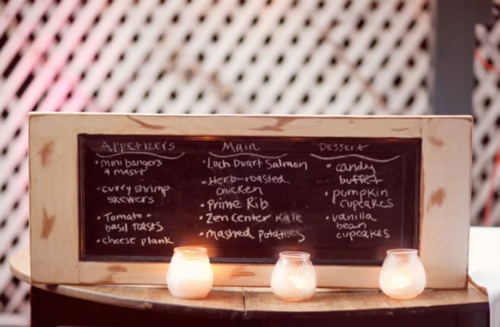 Appetizers
• mini bangers
+ mash
• curry shrimp
skewers
• Tomato +
basil toasts
• cheese plank
Main
• Loch Duart Salmon
• Herb-roasted
chicken
• Prime Rib
• Zen Center Kale
• mashed Potatoes
Dessert
• candy
buffet
• pumpkin
cupcakes
• vanilla
bean
cupcakes